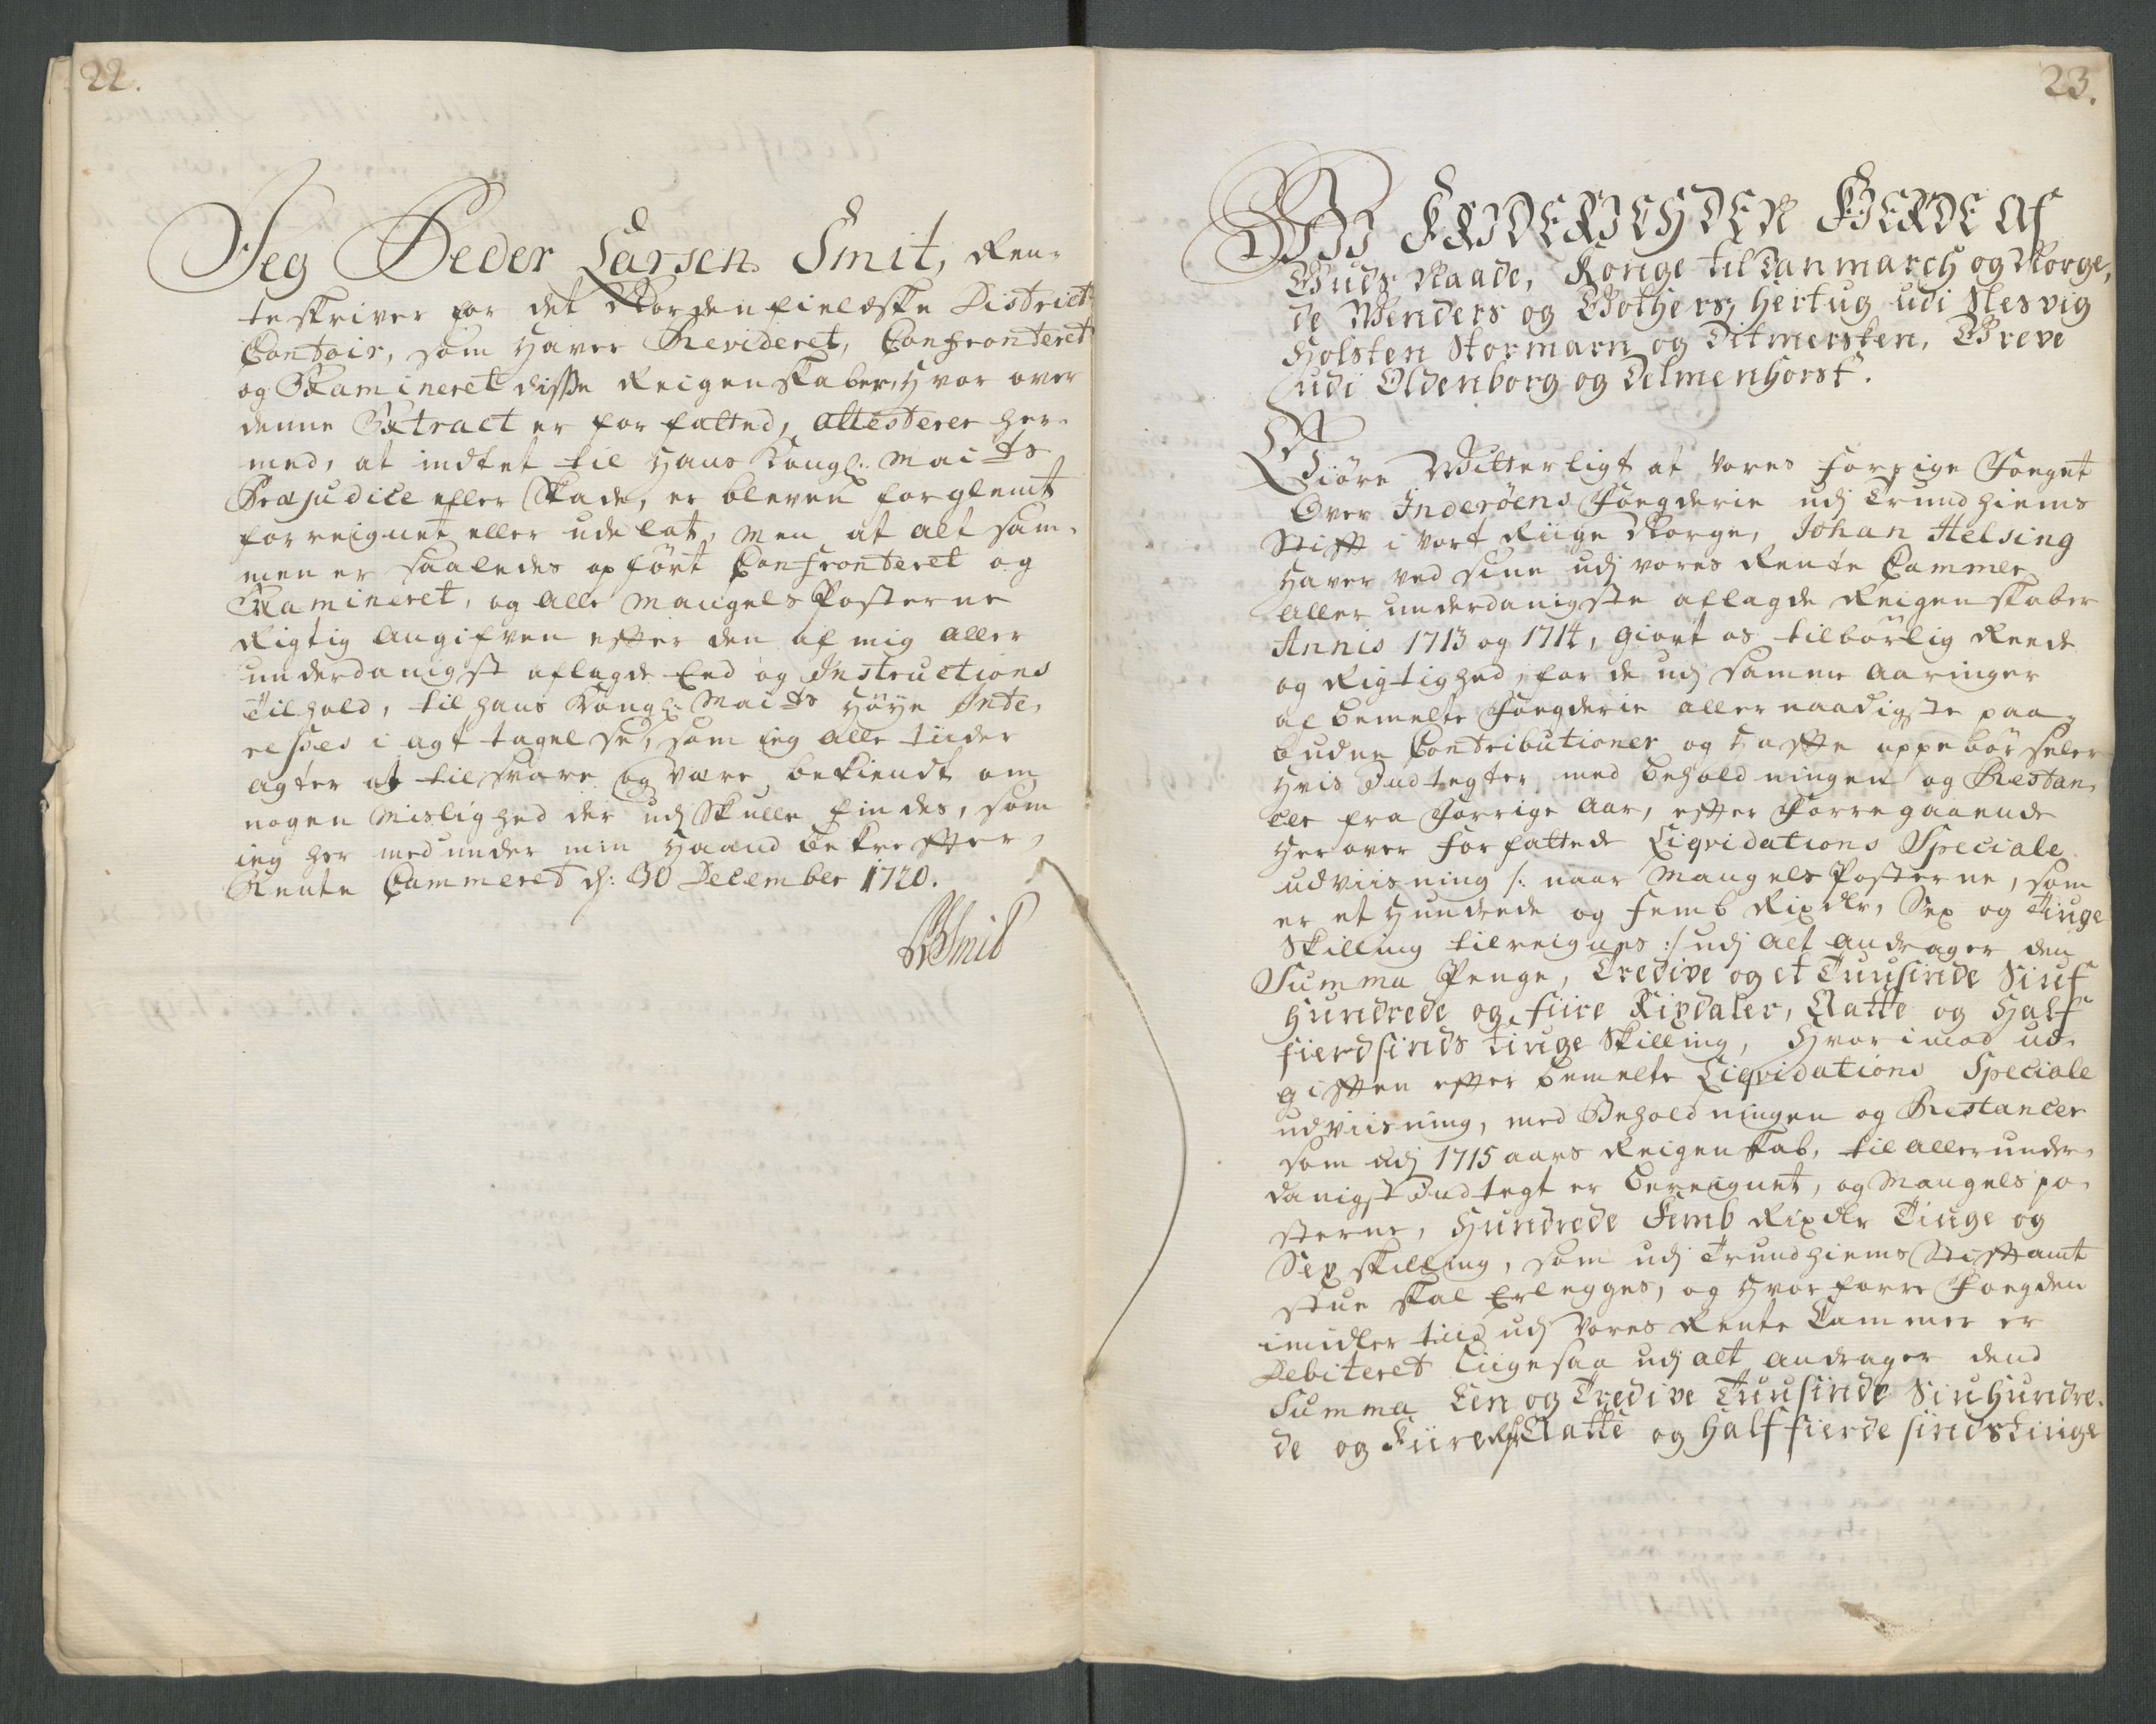 22.
Jeg Peder Larsen Smit, Ren-
teskriver for det Nordenfieldske Districts
Contoir, som haver Revideret, Confronteret
og Examineret disse Reigenskaber, hvor over
denne Extract er forfatted, attesterer her-
med, at indtet til Hans Kongl: Maits
Præjudice eller Skade, er bleven forglemt
forreignet eller udelat, men at alt sam-
men er saaledes opført Confronteret og
Examineret, og alle Mangels Posterne
Rigtig angifven efter den af mig aller
underdanigst aflagde Eed og Instructions
Tilhold, til hans Kongl: Maits høye Inte-
resses i agt tagelse, som ieg alle tiider
agter at tilsvare og være bekiendt om
nogen Mislighed der udj Skulle findes, som
ieg her med under min Haand bekreffter,
Rente Cammeret d: 30 December 1720.
PLSmit
23.
WII FRIDERICH DEN FIERDE Af
Guds Naade, Konge til Danmarch og Norge,
de Wenders og Gothers, Hertug udi Slesvig
Holsten Stormarn og Ditmersken, Greve
udi Oldenborg og Delmenhorst.
Giöre Witterligt at Vores forrige Foeget
Over Inderöens Foegderie udj Trundhiems
Stifft i Vort Riige Norge, Johan Helsing
haver ved sine udj vores Rente Cammer
Aller underdanigste aflagde Reigenskaber
Annis 1713 og 1714, giort os tilbørlig Reede
og Rigtighed, for de udj samme Aaringer
af bemelte Foegderie allernaadigste paa-
budne Contributioner og haffte oppebørseler
Hvis Indtegter med beholdningen og Restan-
cer fra Forrige Aar, efter Forregaaende
Herover forfattede Liqvidations Speciale
udviisning /: naar Mangels Posterne, som
er et Hundrede og femb Rixdlr, Sex og Tiuge
Skilling tilreignes :/ udj alt andrager den
Summa Penge, Tredive og et Tuusinde Siuf
Hundrede og fiire Rixdaler, Aatte og Half
fierdsinds tiuge Skilling, Hvorimod ud-
gifften efter bemelte Liqvidations Speciale
udviisning, med Beholdningen og Restancer
som udj 1715 aars Reigenskab, til allerunder-
danigst Indtegt er bereignet, og Mangels po-
sterne, Hundrede Femb Rixdlr Tiuge og
Sex skilling, som udj Trundhiems Stifftamt
stue skal Erlegges, og hvorforre Foegden
imidler tiid udj Vores Rente Cammer er
Debiteret liigesaa udj alt andrager dend
Summa Een og Tredive Tuusinde Siu Hundre-
de og Fiire Rdr Aatte og Half fierde sinds tiuge